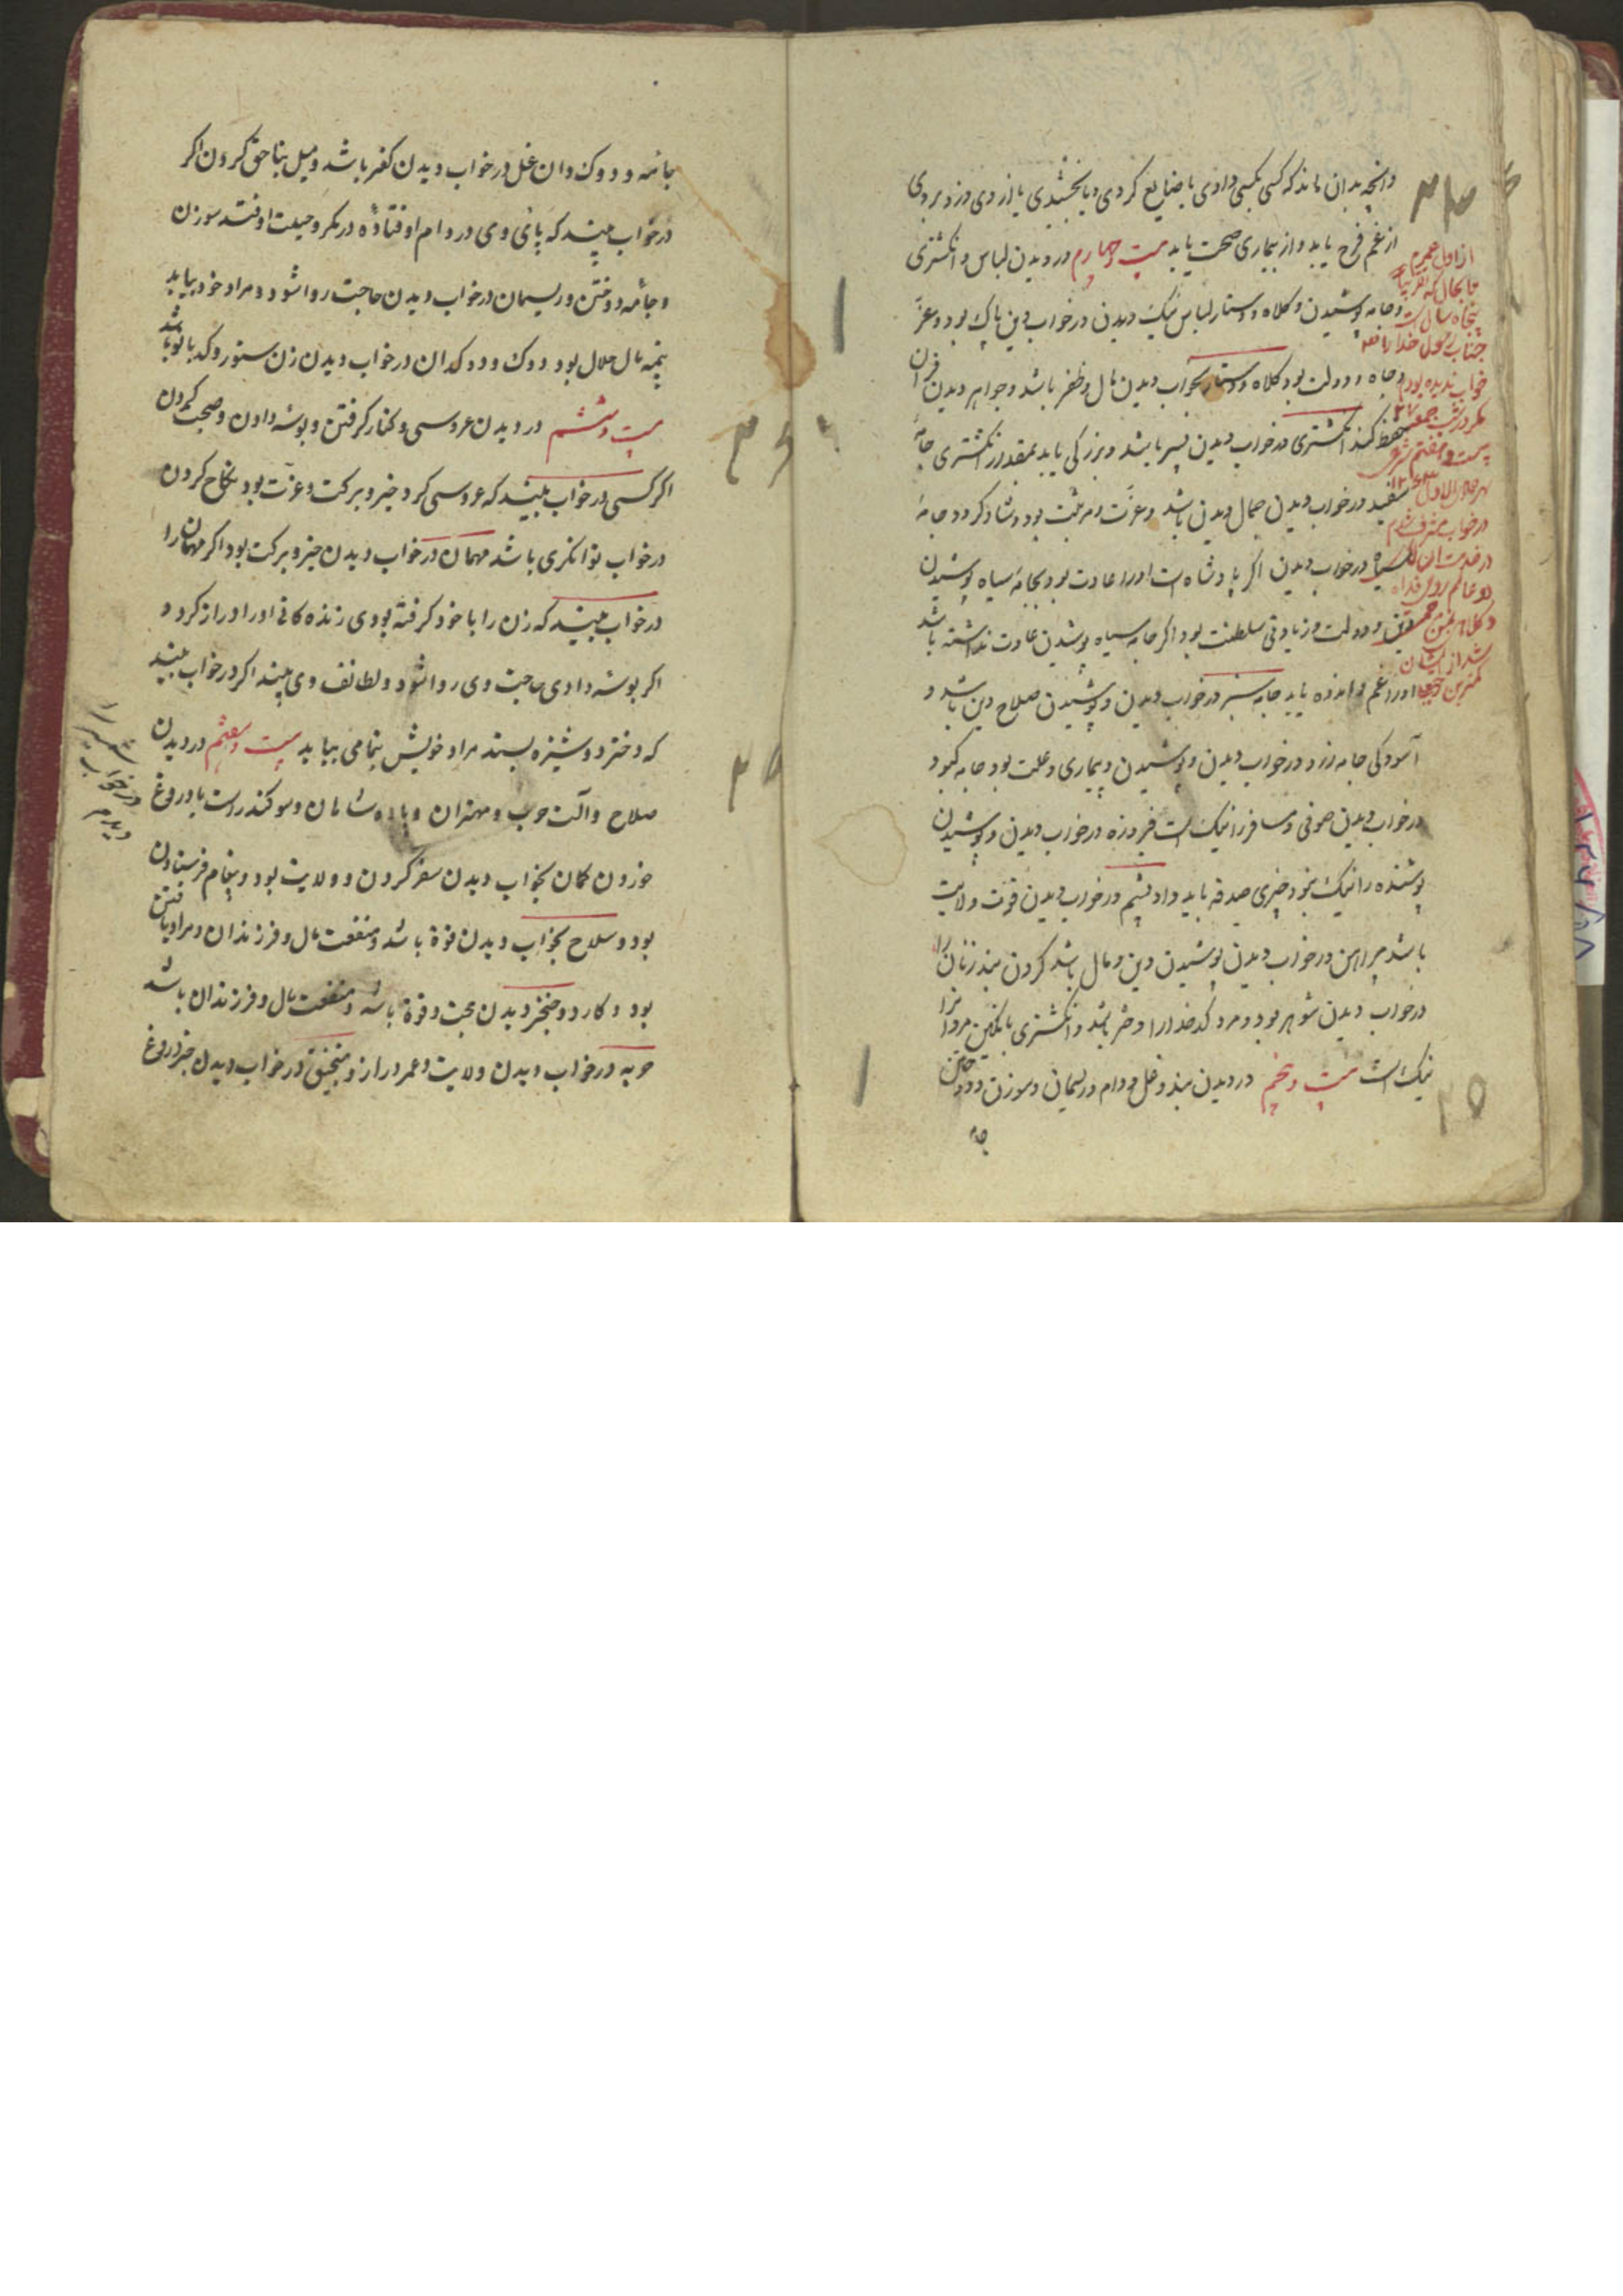 وانچه بدان ماند که کسی بکسی دادی یا ضایع کردی و یا بخشیدی یا از وی دزد بردی
از غم فرح یابد و از بیماری صحت یابد بیست و چهارم در دیدن لباس و انکشتری
و جامه پوشیدن و کلاه و دستار لباس نیک دیدن در خواب دین پاک بود و عز
و جاه و دولت بود کلاه و دستار بخواب دیدن مال و ظفر باشد و جواهر دیدن قران
حفظ کند انکشتری در خواب دیدن پسر باشد و بزرکی یابد بمقدار انکشتری جامه
سفید در خواب دیدن جمال دین باشد و عزت و مرتبت بود و شاد کردد جامه
سیاه در خواب دیدن اکر پادشاه است او را عادت بود بجامه سیاه پوشیدن
دین و دولت و زیادتی سلطنت بود اکر جامه سیاه پوشیدن عادت نداشته باشد
او را غم و اندوه یابد جامه سبز در خواب دیدن و پوشیدن صلاح دین باشد و
آسودکی جامه زرد در خواب دیدن و پوشیدن و بیماری و علت بود جامه کبود
در خواب دیدن صوفی و مسافر را نیک است فیروزه در خواب دیدن و پوشیدن
پوشنده را نیک نبود چیزی صدقه باید داد پشم در خواب دیدن قوت ولایت
باشد پیراهن در خواب دیدن پوشیدن دین و مال باشد کردن بند زنان را
در خواب دیدن شوهر بود و مرد کدخدا را دختر باشد و انکشتری با نکین مردانرا
نیک است بیست و پنجم در دیدن بند و غل و دام و ریسمان و سوزن و دوختن
جامه
از اول عمرم
تا بحال که تقریبا
پنجاه سال است
جناب رسول خدا را
خواب ندیده بودم
مکر در شب جمعه ۲۷
بیست و هفتم شهر
در خواب مشرف شدم
در خدمت ان
دو عالم روحی فداه
کمترین
۲۴
۲۵
جامه و دوک دان غل در خواب دیدن کفر باشد و میل بناحق کردن اکر
در خواب بیند که پای وی در دام اوفتاده در مکر و حیلت اوفتد سوزن
و جامه دوختن و ریسمان در خواب دیدن حاجت روا شود و مراد خود بیابد
پنبه مال حلال بود دوک و دوکدان در خواب دیدن زن ستور و کدبانو باشد
بیست و ششم در دیدن عروسی و کنار کرفتن و بوسه دادن و صحبت کردن
اکر کسی در خواب بیند که عروسی کرد خیر و برکت و عزت بود نکاح کردن
در خواب توانکری باشد مهمان در خواب دیدن خیر و برکت بود اکر مهمان را
در خواب بیند که زن را با خود کرفته بودی زنده کانی او را دراز کردد
اکر بوسه دادی حاجت وی روا شود و لطائف وی بیند اکر در خواب بیند
که دختر دوشیزه بستد مراد خویش بتمامی بیابد بیست و هفتم در دیدن
صلاح و آلت حرب و مهتران و پادشاهان و سوکند راست یا دروغ
خوردن کمان بخواب دیدن سفر کردن و ولایت بود و پیغام فرستادن
بود و سلاح بخواب دیدن قوة باشد و منفعت مال و فرزندان و مراد یافتن
بود و کارد و خنجر دیدن محبت و قوة باشد و منفعت مال و فرزندان باشد
حربه در خواب دیدن ولایت و عمر دراز و منجنیق در خواب دیدن خبر دروغ
شمشیر را
در خواب
دیدم
۲۶